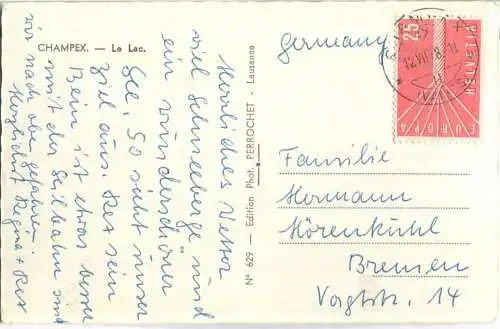 CHAMPEX. — Le Lac.
Herrliches Wetter
viel Schneeberge und
ein wunderschöner
See, "So sieht unser
Ziel aus. Rex sein
Bein ist etwas besser
mit der Seilbahn sind
wir nach oben gefahren.
Herzlichst Regina + Rex
N° 629 — Edition Phot. PERROCHET - Lausanne
Germany
25
HELVETIA
EUROPA
Familie
Hermann
Hörenkühl
Bremen
Vogtstr. 14